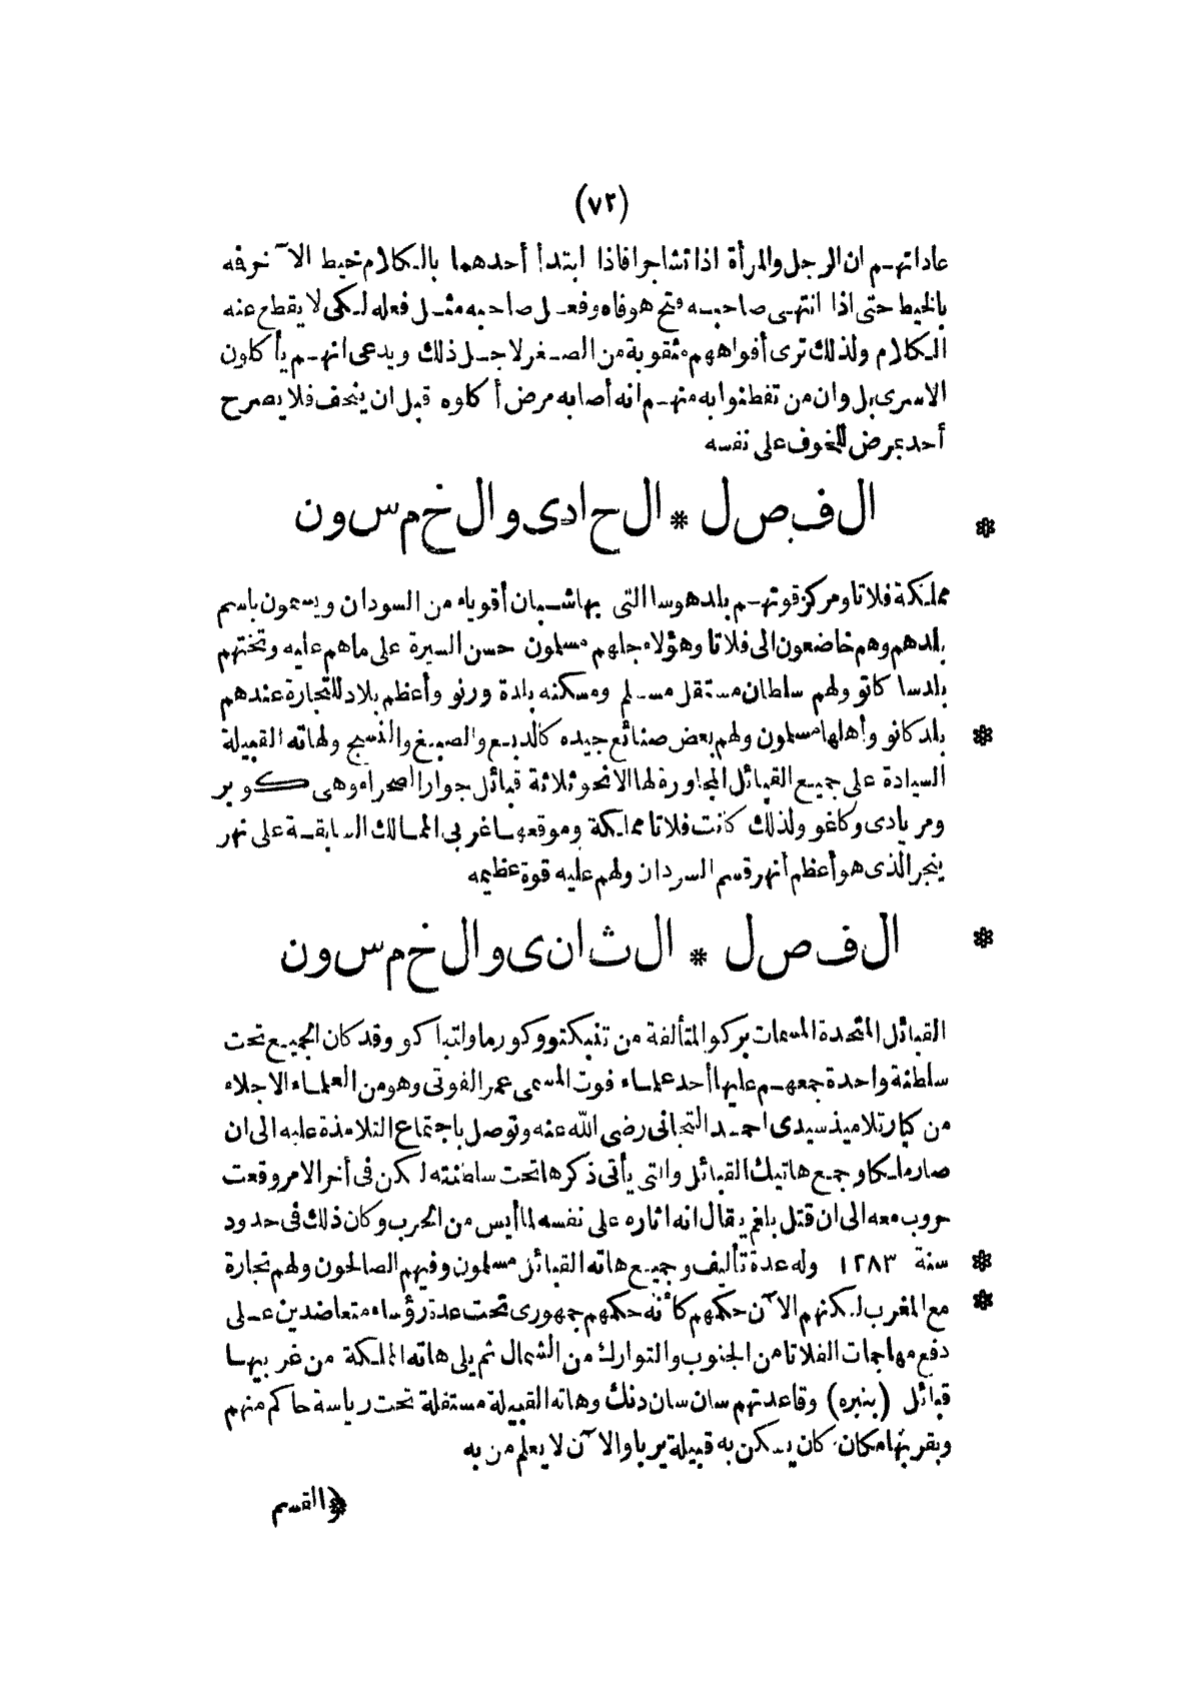 (٧٢)
عاداتهم ان الرجل والمرأة اذا تشاجرا فاذا ابتدأ أحدهما بالكلام خيط الآخر فه
بالخيط حتى اذا انتهى صاحبه فتح هو فاه وفعل صاحبه مثل فعله لكى لا يقطع عنه
الكلام ولذلك ترى أفواههم مثقوبة من الصغر لاجل ذلك ويدعى انهم يأكلون
الاسرى بل وان من تفطنوا به منهم انه أصابه مرض أكلوه قبل ان ينحف فلا يصرح
أحد بمرض للخوف على نفسه
الفصل * الحادى والخمسون *
مملكة فلاتا ومركز قوتهم بلد هوسا التى بها شبان أقوياء من السودان ويسمون باسم
بلدهم وهم خاضعون الى فلاتا وهؤلاء جلهم مسلمون حسن السيرة على ماهم عليه وتختهم
بلد ساكاتو ولهم سلطان مستقل مسلم ومسكنه بلدة ورنو وأعظم بلاد للتجارة عندهم
بلد كانو وأهلها مسلمون ولهم بعض صنائع جيده كالدبغ والصبغ والنسيج ولهاته القبيلة *
السيادة على جميع القبائل المجاورة لها الا نحو ثلاثة قبائل جوار الصحراء وهى كوبر
ومريادى وكاغو ولذلك كانت فلاتا مملكة وموقعها غربى الممالك السابقة على نهر
ينجر الذى هو أعظم أنهر قسم السردان ولهم عليه قوة عظيمه
الفصل * الثانى والخمسون *
القبائل المتحدة المسمات بركو المتألفة من تنبكتو وكورما واتباكو وقد كان الجميع تحت
سلطنة واحدة جمعهم عليها أحد علماء فوت المسمى عمر الفوتى وهو من العلماء الاجلاء
من كبار تلاميذ سيدى احمد التجانى رضى الله عنه وتوصل باجتماع التلامذة عليه الى ان
صار ملكا وجمع هاتيك القبائل والتى يأتى ذكرها تحت سلطنته لكن فى أخر الامر وقعت
حروب معه الى ان قتل بلغم يقال انه اثاره على نفسه لما أيس من الحرب وكان ذلك فى حدود
سنة ١٢٨٣ وله عدة تأليف وجميع هاته القبائل مسلمون وفيهم الصالحون ولهم تجارة *
مع المغرب لكنهم الآن حكمهم كأنه حكمهم جمهورى تحت عدة رؤساء متعاضدين على *
دفع مهاجمات الفلاتا من الجنوب والتوارك من الشمال ثم يلى هاته المملكة من غربيها
قبائل (بنبره) وقاعدتهم سان سان دنك وهاته القبيلة مستقلة تحت رياسة حاكم منهم
وبقربها مكان كان يسكن به قبيلة يربا والآن لا يعلم من به
﴿القسم